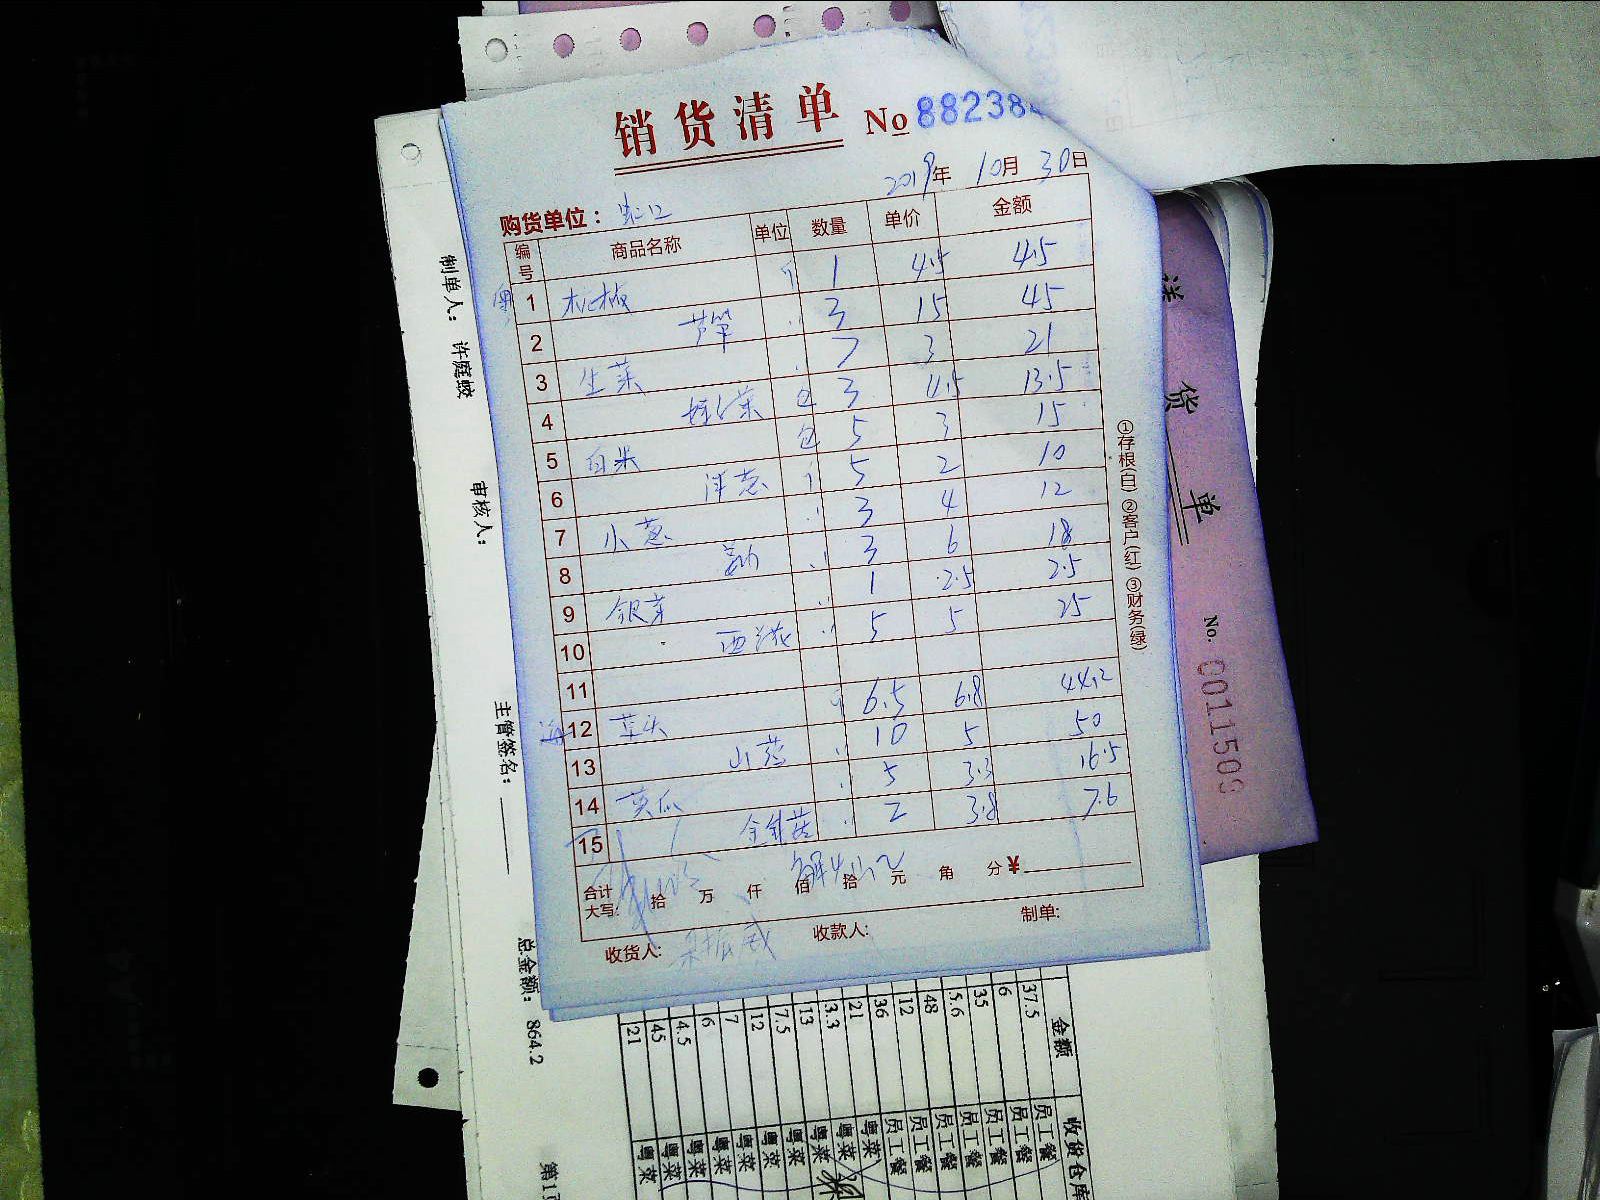 销货清单 No 88238
2019年 10月 30日
购货单位： 虹口
编号 商品名称 单位 数量 单价 金额
粤 1 杭椒 斤 1 4.5 4.5
2 芦笋 〃 3 15 45
3 生菜 〃 7 3 21
4 娃娃菜 包 3 4.5 13.5
5 包 5 3 15
6 洋葱 斤 5 2 10
7 小葱 〃 3 4 12
8 〃 3 6 18
9 银芽 〃 1 2.5 2.5
10 〃 5 5 25
11
海 12 草头 斤 6.5 6.8 44.2
13 小葱 〃 10 5 50
14 黄瓜 〃 5 3.3 16.5
15 金针菇 〃 2 3.8 7.6
合计大写: 拾 万 仟 佰 拾 元 角 分 ¥
收货人: 收款人: 制单:
①存根(白) ②客户(红) ③财务(绿)
制单人： 许庭蛟
审核人：
主管签名：
总金额： 864.2
第1页
送货单
No. 0011509
金额 收货仓库
37.5 员工餐
6 员工餐
35 员工餐
5.6 员工餐
48 员工餐
12 员工餐
36 员工餐
21 粤菜
3.3 粤菜
13 粤菜
7.5 粤菜
12 粤菜
7 粤菜
6 粤菜
4.5 粤菜
45 粤菜
21 粤菜